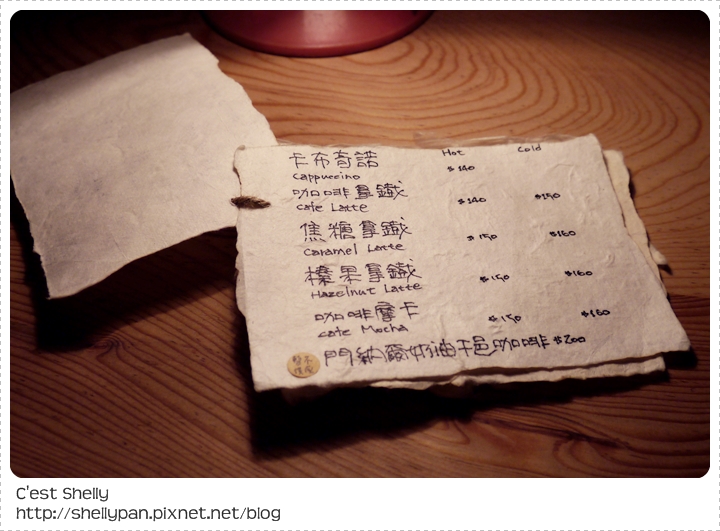 卡布奇諾 Hot Cold
Cappuccino $140
咖啡拿鐵
Cafe Latte $140 $150
焦糖拿鐵 $150 $160
Caramel Latte
榛果拿鐵 $150 $160
Hazelnut Latte
咖啡摩卡 $150 $160
cafe Mocha
門納爵奶油干邑咖啡 $200
C'est Shelly
http://shellypan.pixnet.net/blog